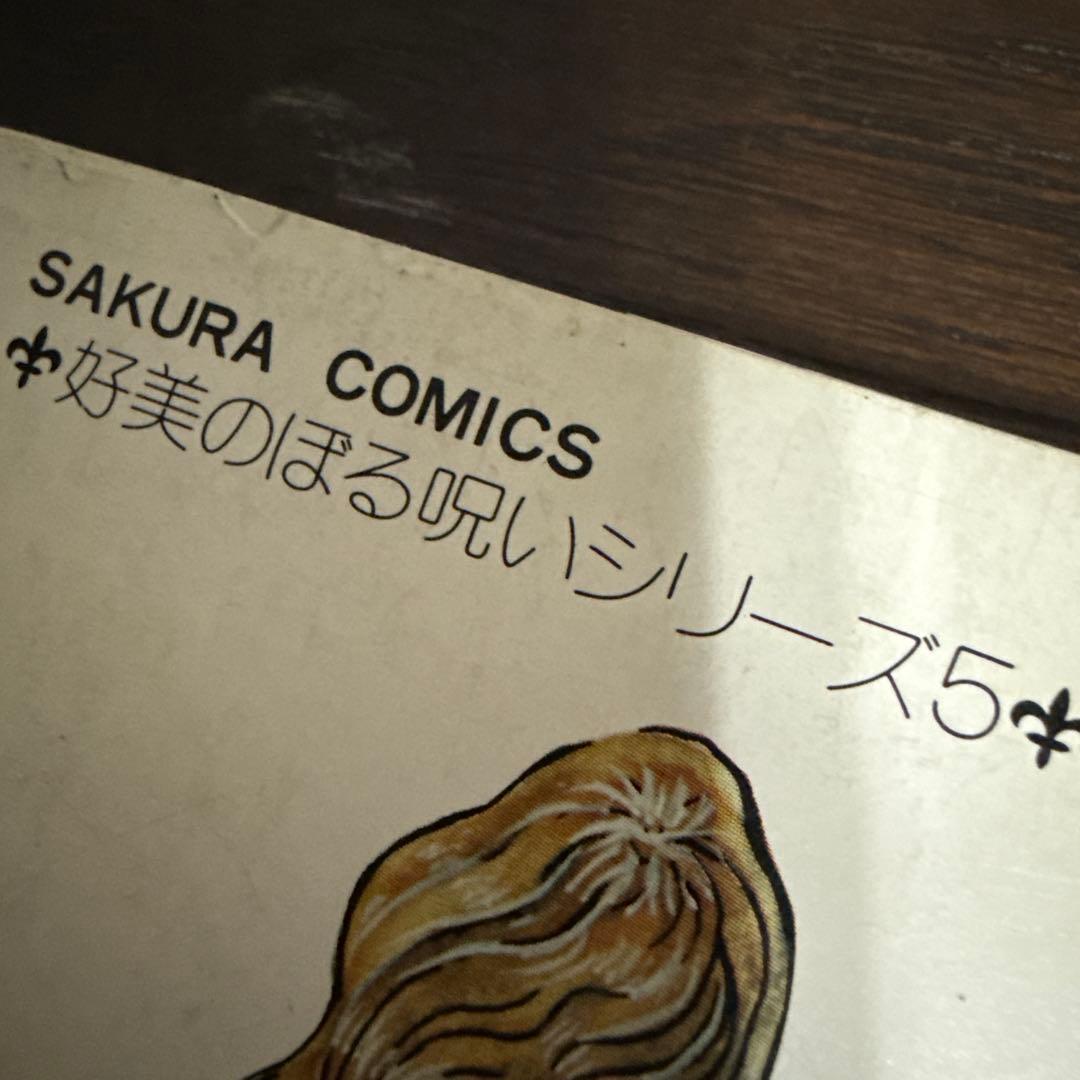 SAKURA COMICS
⚜好美のぼる呪いシリーズ5⚜